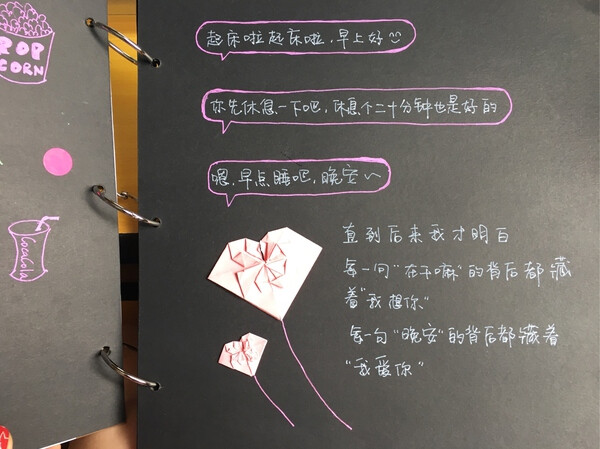 POP
CORN
CocaCola
起床啦起床啦,早上好
你先休息一下吧,休息个二十分钟也是好的
嗯,早点睡吧,晚安~
直到后来我才明白
每一句“在干嘛”的背后都藏
着“我想你”
每一句“晚安”的背后都藏着
“我爱你”